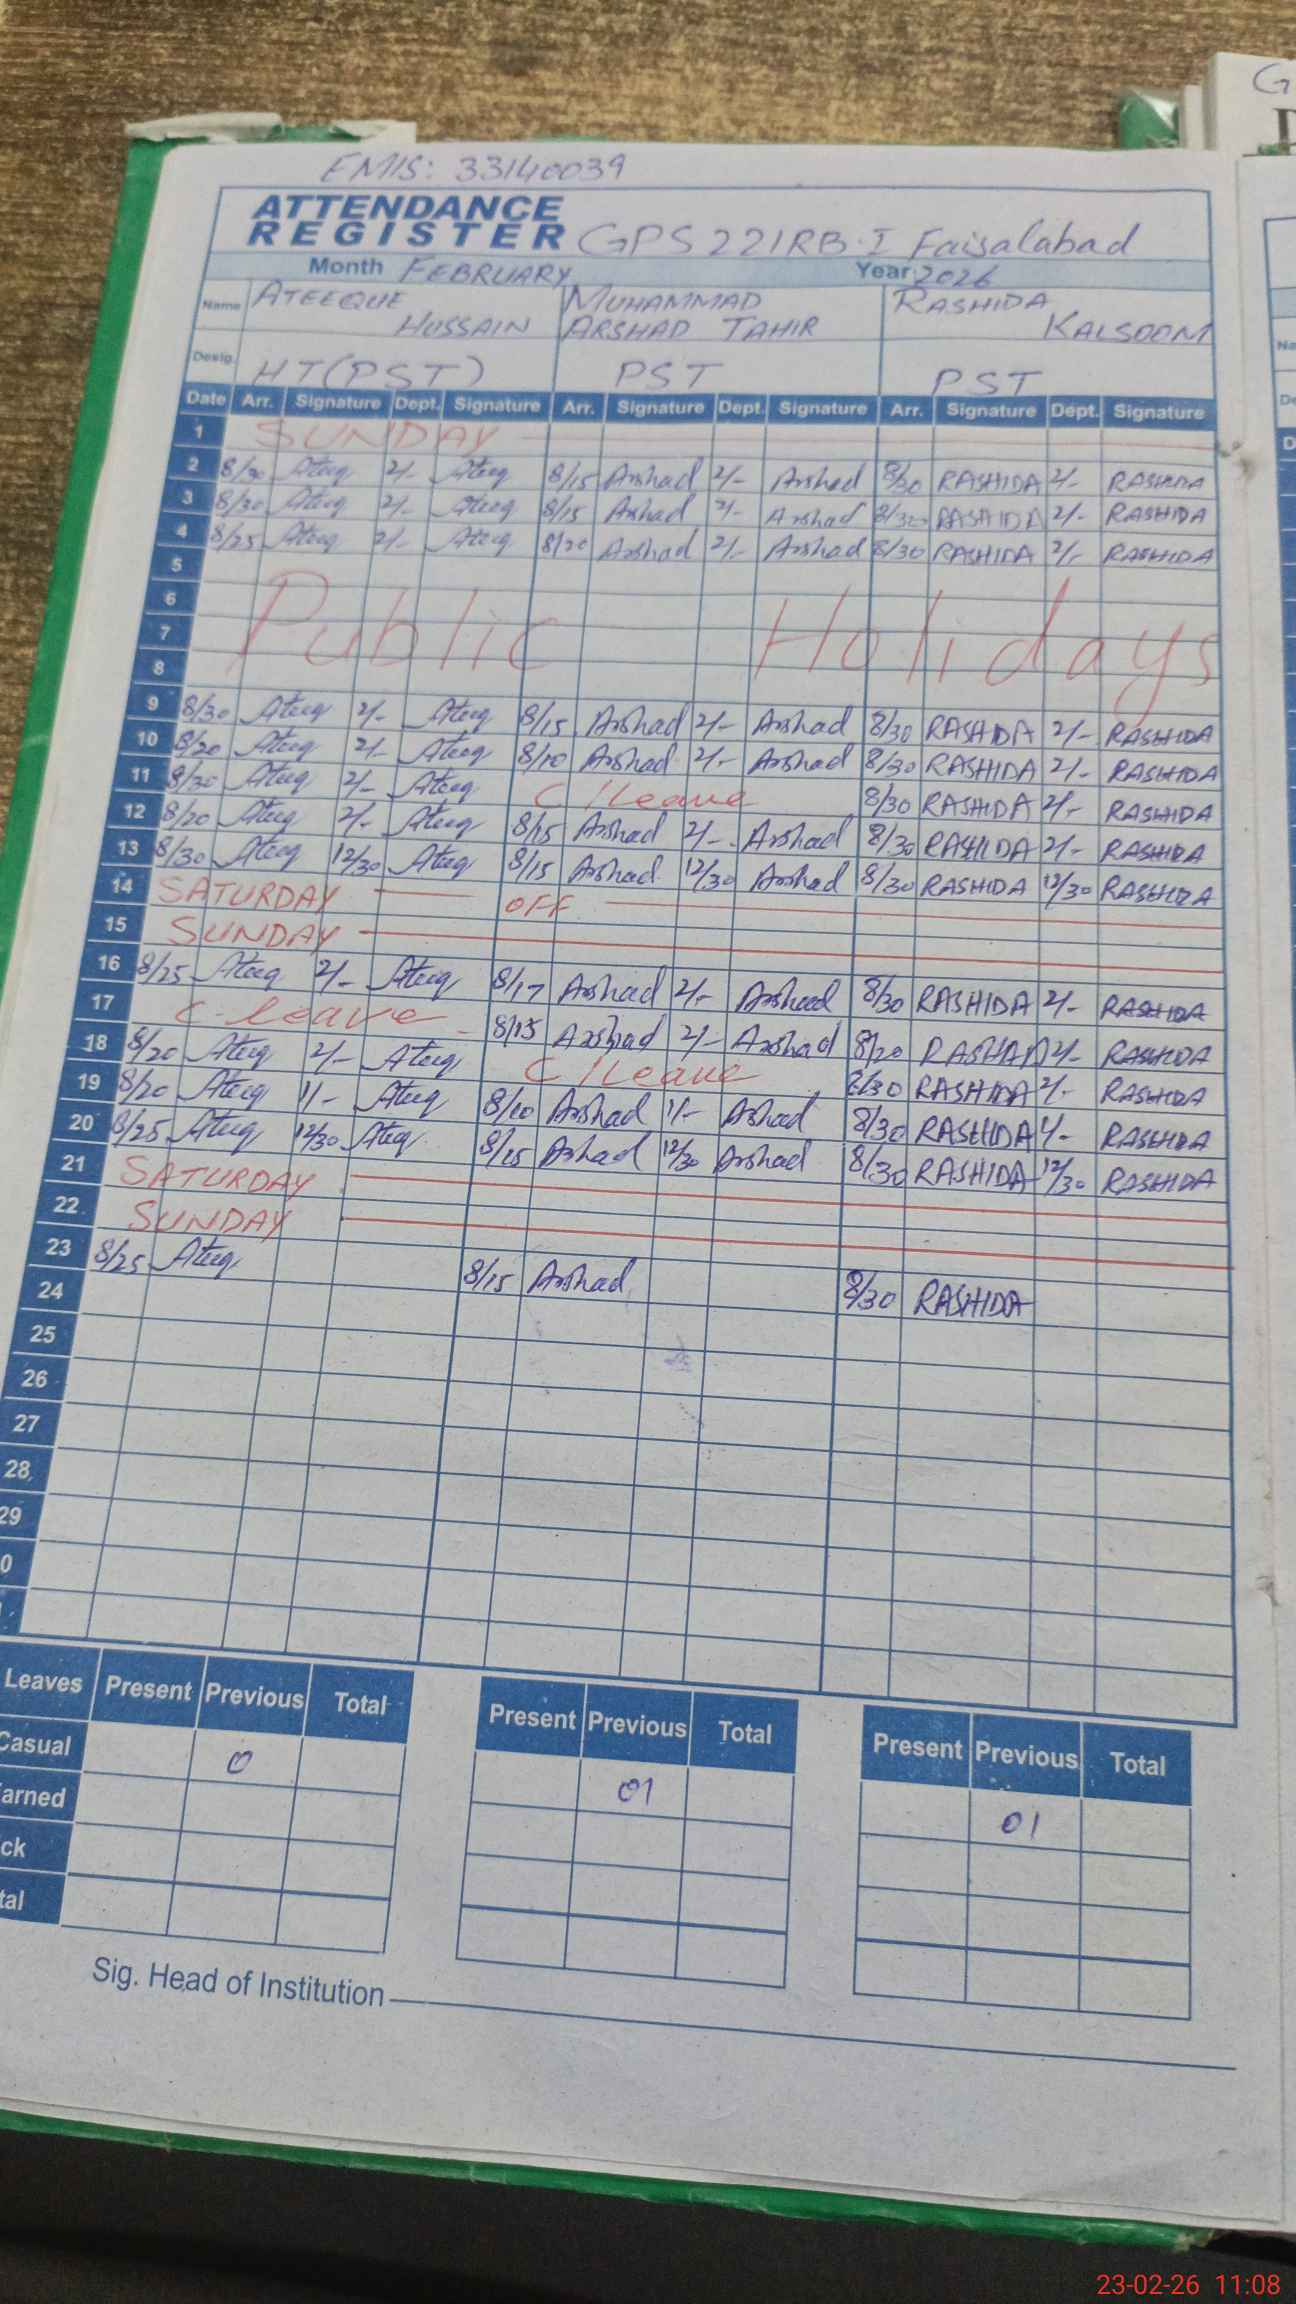 EMIS: 33140039
ATTENDANCE
REGISTER GPS 221RB-I Faisalabad
Month FEBRUARY Year 2026
Name ATEEQUE HUSSAIN MUHAMMAD ARSHAD TAHIR RASHIDA KALSOOM
Desig. HT(PST) PST PST
Date Arr. Signature Dept. Signature Arr. Signature Dept. Signature Arr. Signature Dept. Signature
1 SUNDAY
2 8/30 Ateeq 2/- Ateeq 8/15 Arshad 2/- Arshad 8/30 RASHIDA 2/- RASHIDA
3 8/30 Ateeq 2/- Ateeq 8/15 Arshad 2/- Arshad 8/30 RASHIDA 2/- RASHIDA
4 8/25 Ateeq 2/- Ateeq 8/20 Arshad 2/- Arshad 8/30 RASHIDA 2/- RASHIDA
5
6
Public Holidays
7
8
9 8/30 Ateeq 2/- Ateeq 8/15 Arshad 2/- Arshad 8/30 RASHIDA 2/- RASHIDA
10 8/20 Ateeq 2/- Ateeq 8/10 Arshad 2/- Arshad 8/30 RASHIDA 2/- RASHIDA
11 8/30 Ateeq 2/- Ateeq C/Leave 8/30 RASHIDA 2/- RASHIDA
12 8/20 Ateeq 2/- Ateeq 8/15 Arshad 2/- Arshad 8/30 RASHIDA 2/- RASHIDA
13 8/30 Ateeq 12/30 Ateeq 8/15 Arshad 12/30 Arshad 8/30 RASHIDA 12/30 RASHIDA
14 SATURDAY OFF
15 SUNDAY
16 8/25 Ateeq 2/- Ateeq 8/17 Arshad 2/- Arshad 8/30 RASHIDA 2/- RASHIDA
17 C-leave 8/15 Arshad 2/- Arshad 8/20 RASHIDA 2/- RASHIDA
18 8/20 Ateeq 2/- Ateeq C/Leave 8/30 RASHIDA 2/- RASHIDA
19 8/20 Ateeq 11/- Ateeq 8/10 Arshad 11/- Arshad 8/30 RASHIDA RASHIDA
20 8/25 Ateeq 12/30 Ateeq 8/15 Arshad 12/30 Arshad 8/30 RASHIDA 12/30 RASHIDA
21 SATURDAY
22 SUNDAY
23 8/25 Ateeq 8/15 Arshad 8/30 RASHIDA
24
25
26
27
28
29
0
Leaves Present Previous Total Present Previous Total Present Previous Total
Casual 0 01 01
arned
ck
tal
Sig. Head of Institution
23-02-26 11:08